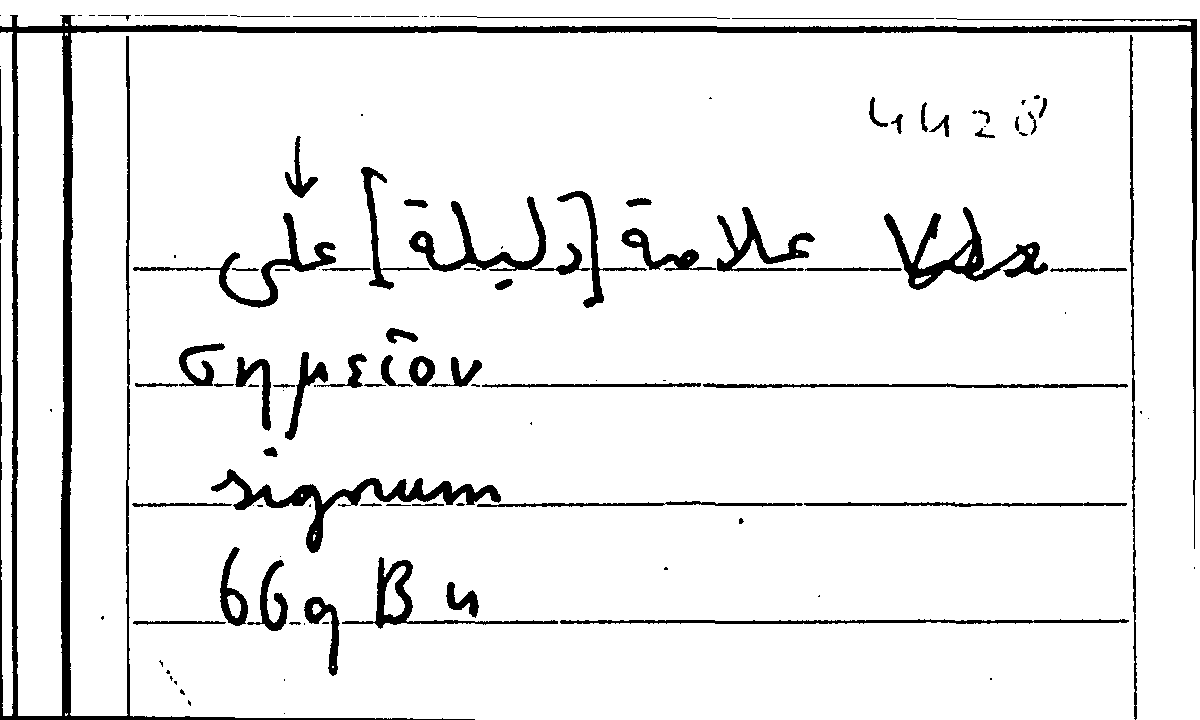 4428
علامة [دليلة] على
σημεῖον
signum
669 B 4